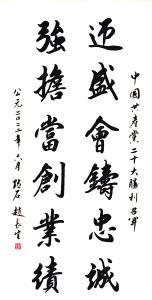 中国共产党二十大胜利召开
迎盛會鑄忠誠
強擔當創業績
公元二〇二二年六月